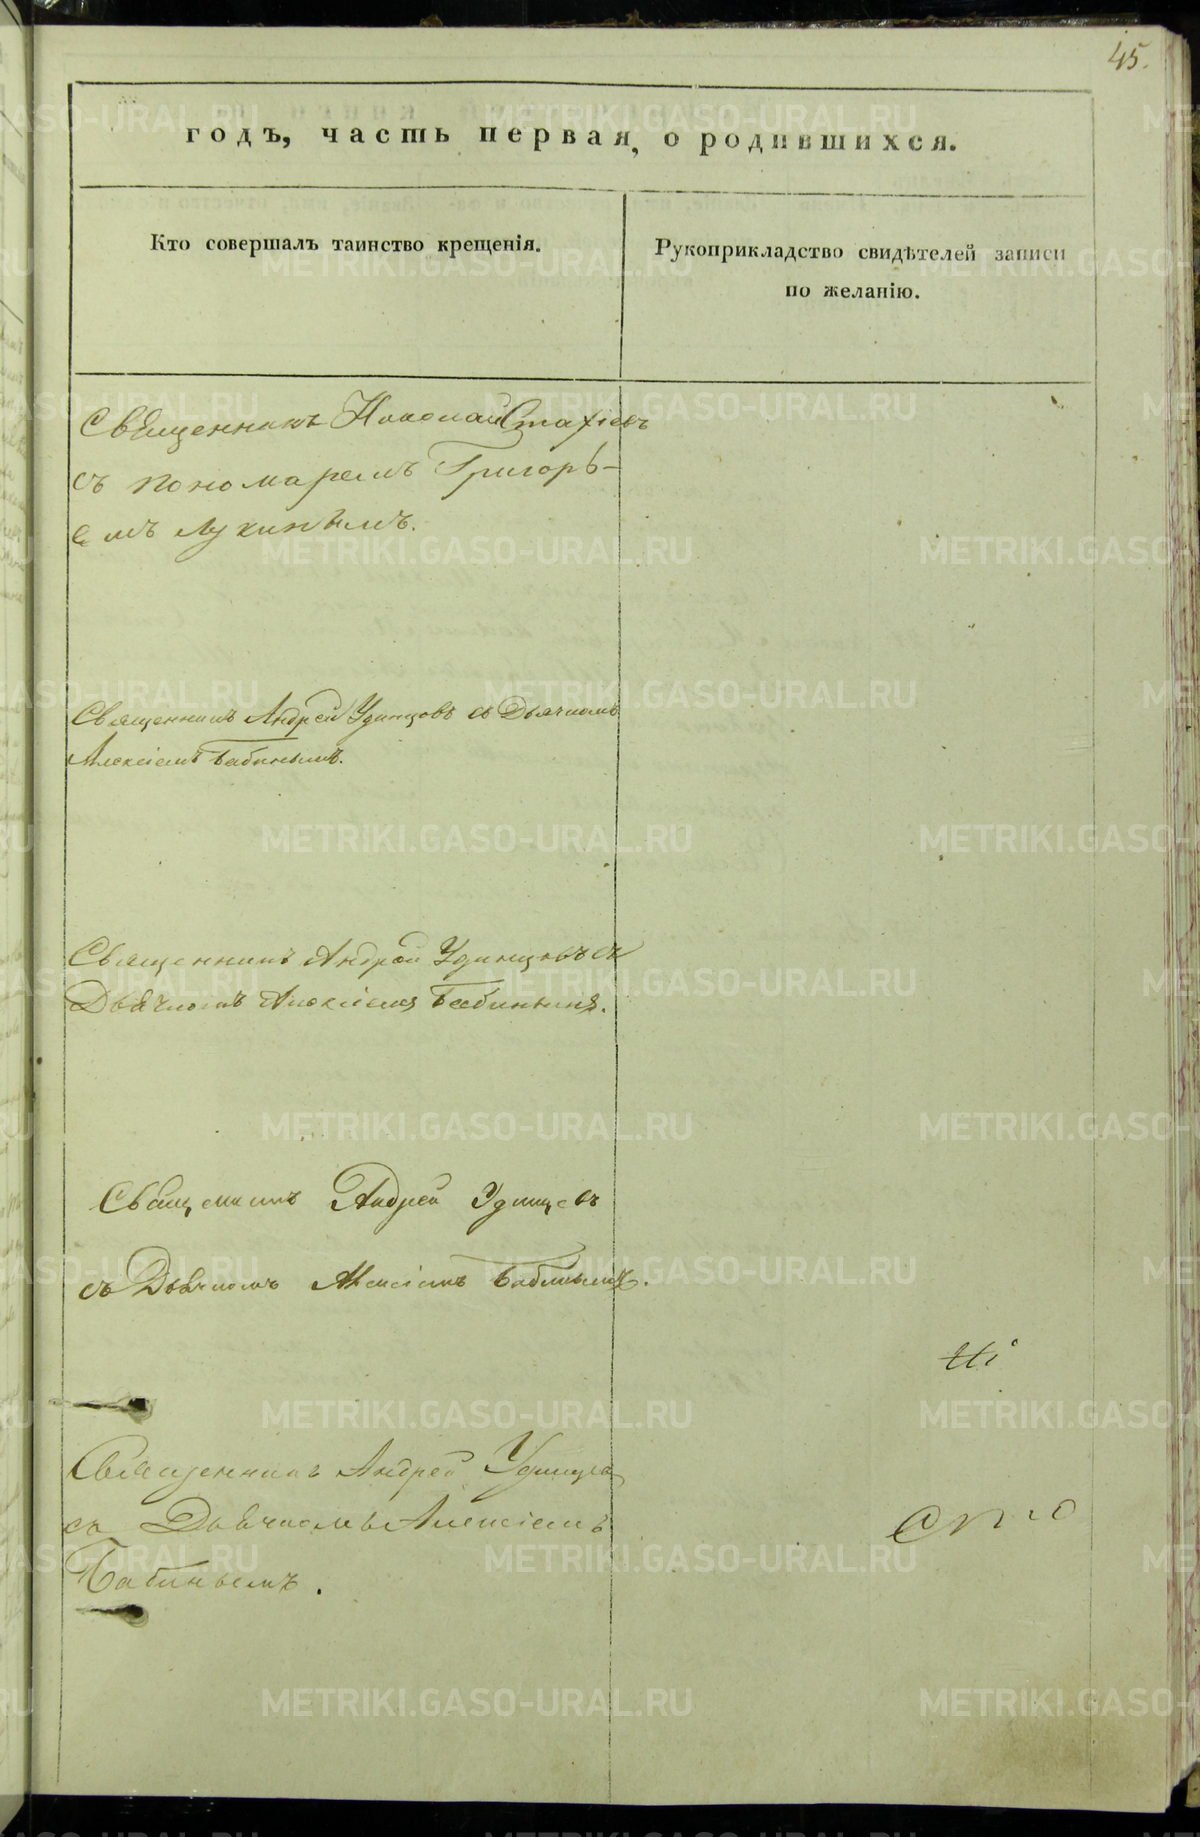 45.
годъ, часть первая, о родившихся.
Кто совершалъ таинство крещенія.
Рукоприкладство свидѣтелей записи
по желанію.
Священникъ Николай Стахіевъ
съ пономаремъ Григорь-
емъ Лукинымъ.
Священникъ Андрей Удинцовъ съ Дьячкомъ
Алексіемъ Бабинымъ.
Священникъ Андрей Удинцовъ съ
Дьячкомъ Алексіемъ Бабинымъ.
Священникъ Андрей Удинцевъ
съ Дьячкомъ Алексіемъ Бабинымъ.
Священникъ Андрей Удинцовъ
съ Дьячкомъ Алексіемъ
Бабинымъ.
METRIKI.GASO-URAL.RU